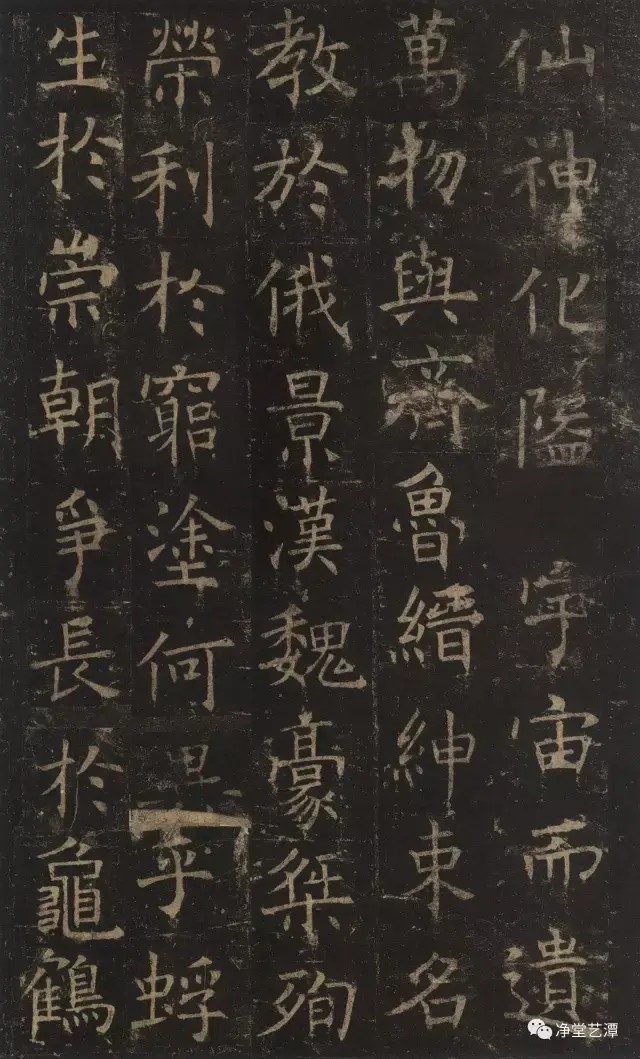 仙神化隘 宇宙而遺
萬物與齊魯縉紳束名
教於俄景漢魏豪桀殉
榮利於窮塗何異乎蜉
生於崇朝爭長於龜鶴
净堂艺潭